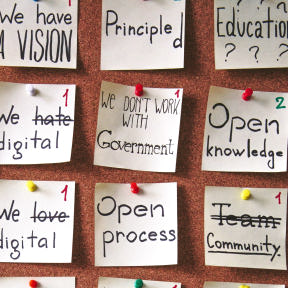 We have
A VISION
1
Principled
Education
? ? ? ?
We hate
digital
1
WE DON'T WORK
WITH
Government
1
Open
knowledge
2
We love
digital
1
Open
process
Team
Community.
1